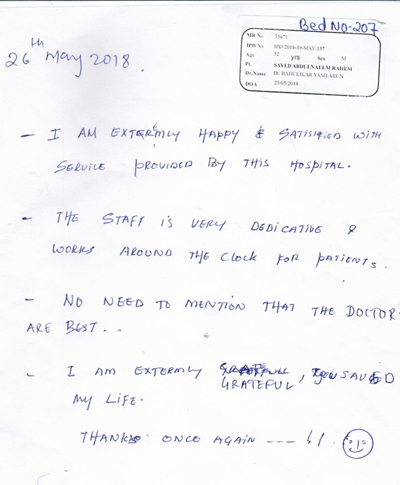 Bed NO-207
MR No 35471
IPD No IPD/2018-19-MAY/157
Age 52 yrs Sex M
Pt. SAYED ABDULNAEEM RAHEM
Dr.Name Dr BAHULIKAR YASH ARUN
DOA 25/05/2018
26th May 2018.
- I AM EXTERMLY HAPPY & SATISIFIED WITH
SERVICE PROVIDED BY THIS HOSPITAL.
- THE STAFF IS VERY DEDICATIVE &
WORKS AROUND THE CLOCK FOR PATIENTS.
- NO NEED TO MENTION THAT THE DOCTOR
ARE BEST...
- I AM EXTERMLY GRATEFUL, SAVED
MY LIFE.
THANKS ONCE AGAIN --- !!